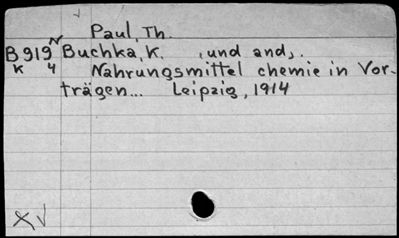 Paul, Th.
B 919 N Buchka, K. , und and, .
K 4 Nahrungsmittel chemie in Vor-
trägen... Leipzig, 1914
XV